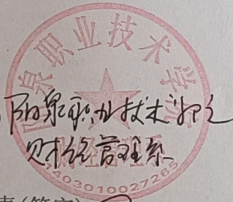 阳泉职业技术学院
阳泉职业技术学院
财经管理系
1403010027265
(签字)